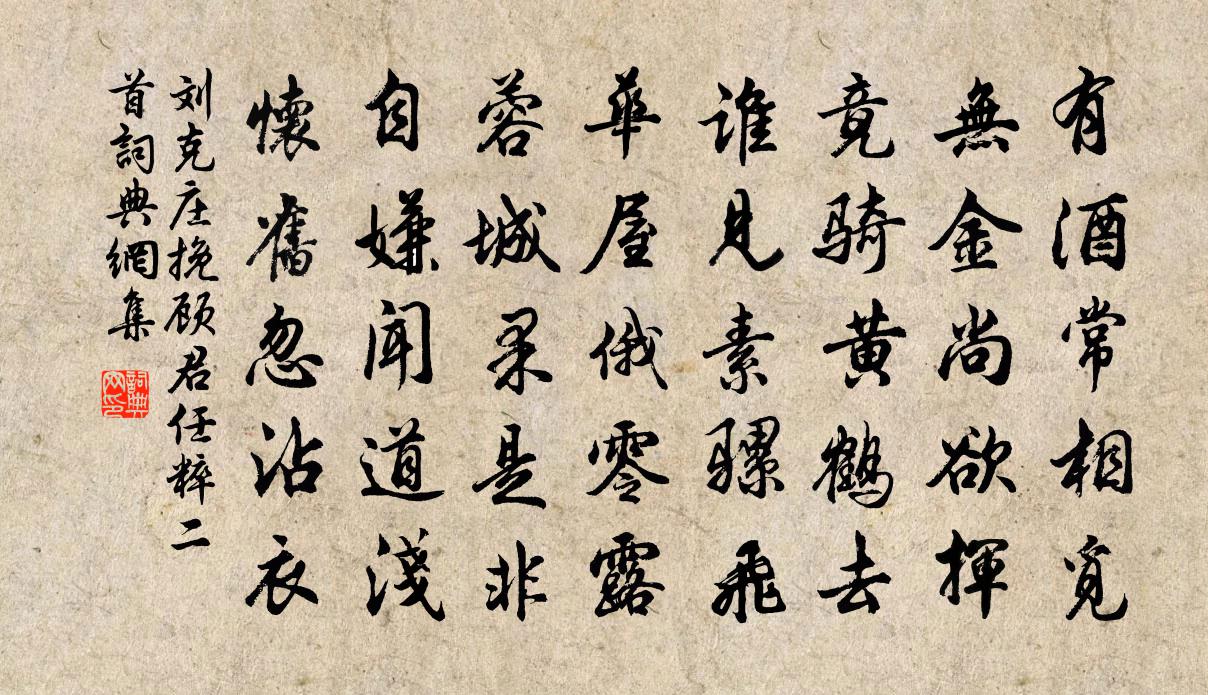 有酒常相覓
無金尚欲揮
竟骑黄鶴去
谁見素骡飛
華屋俄零露
蓉城果是非
自嫌闻道淺
懷舊忽沾衣
刘克庄挽顾君任粹二
首詞典網集
詞典
网印